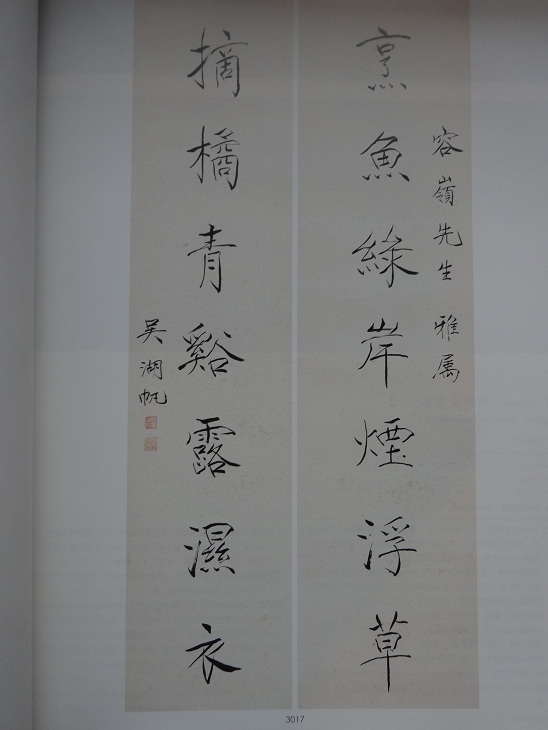 容嶺先生 雅属
烹魚綠岸煙浮草
摘橘青谿露濕衣
吴湖帆
3017